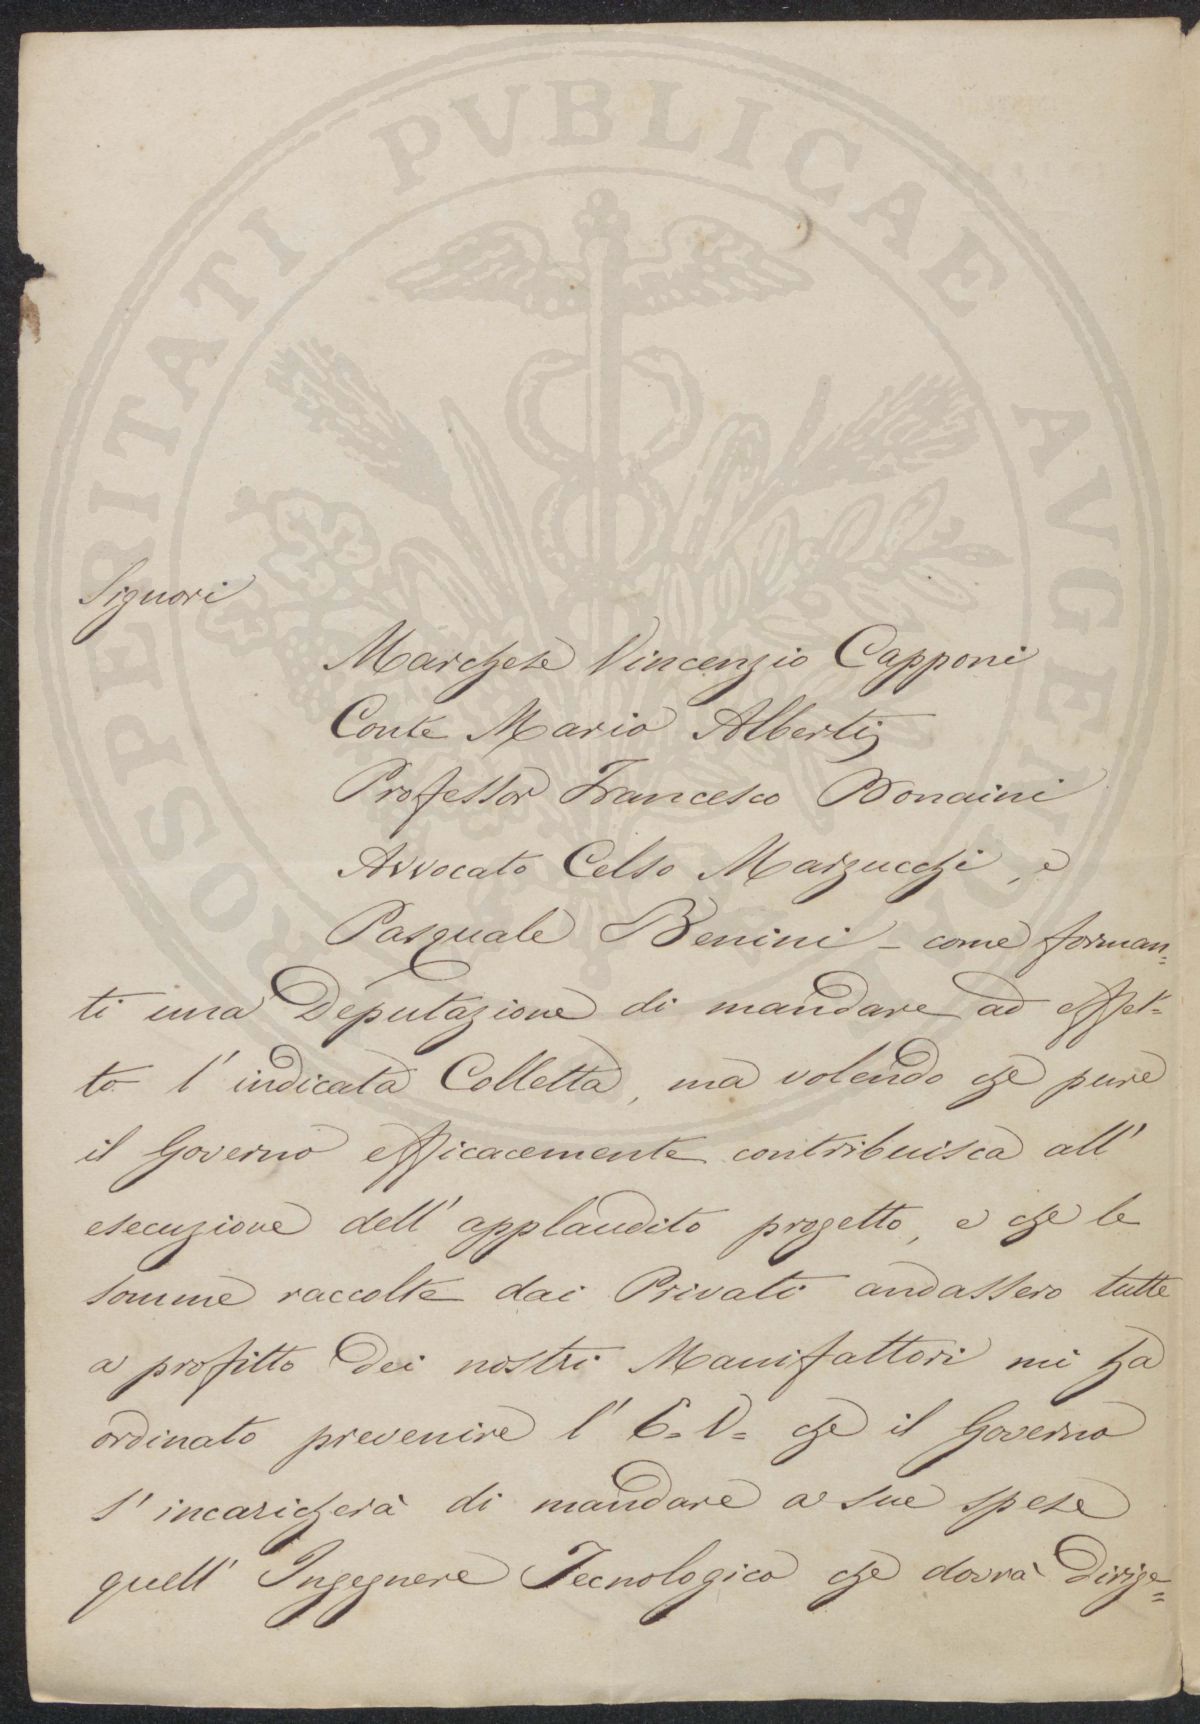 PROSPERITATI PVBLICAE AVGENDAE
Signori
Marchese Vincenzio Capponi
Conte Mario Alberti
Professor Francesco Bonaini
Avvocato Celso Marzucchi, e
Pasquale Benini - come forman=
ti una Deputazione di mandare ad effet=
to l'indicata Colletta, ma volendo che pure
il Governo efficacemente contribuisca all'
esecuzione dell'applaudito progetto, e che le
somme raccolte dai Privati andassero tutte
a profitto dei nostri Manifattori mi ha
ordinato prevenire l'E. V. che il Governo
s'incaricherà di mandare a sue spese
quell'Ingegnere Tecnologico che dovrà dirige=